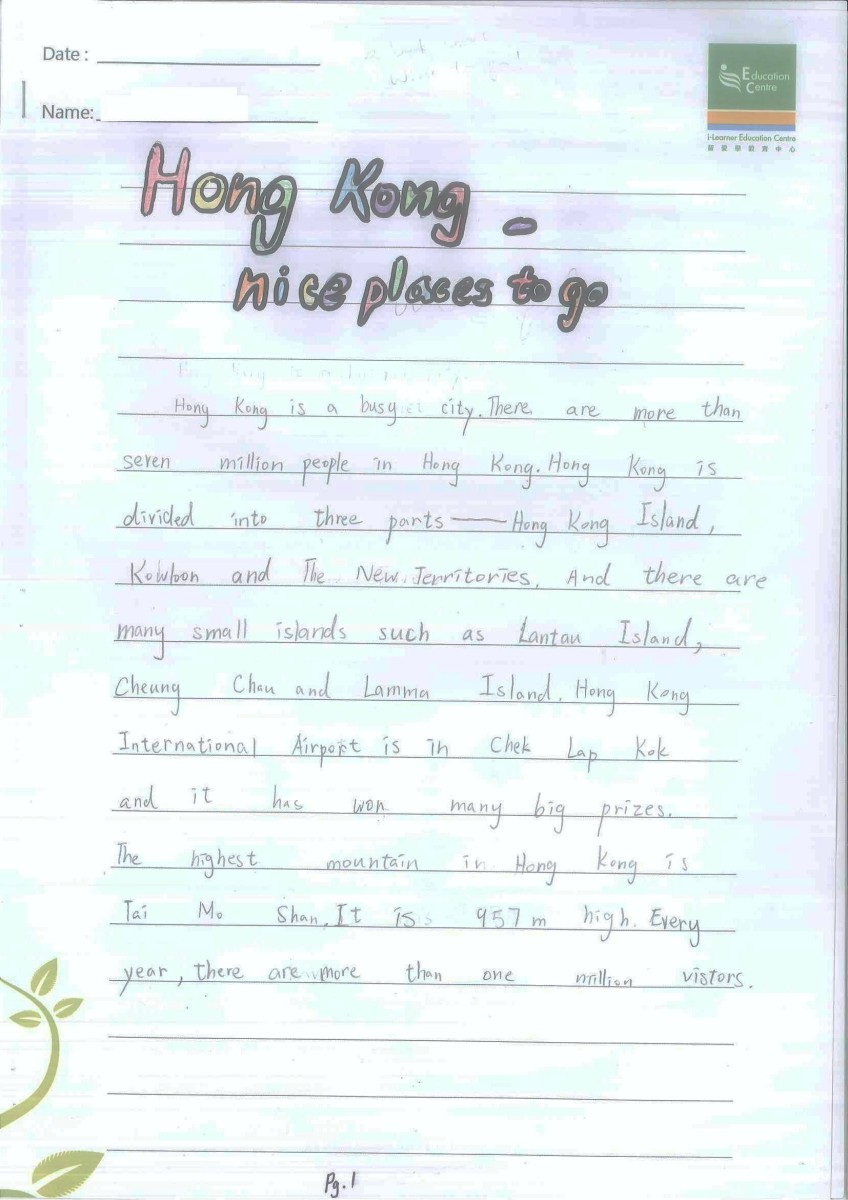 Date :
Name:
Education
Centre
i-Learner Education Centre
Hong Kong -
nice places to go
Hong Kong is a busy city. There are more than
seven million people in Hong Kong. Hong Kong is
divided into three parts —— Hong Kong Island,
Kowloon and The New Territories. And there are
many small islands such as Lantau Island,
Cheung Chau and Lamma Island. Hong Kong
International Airport is in Chek Lap Kok
and it has won many big prizes.
The highest mountain in Hong Kong is
Tai Mo Shan. It is 957 m high. Every
year, there are more than one million vistors.
Pg. 1